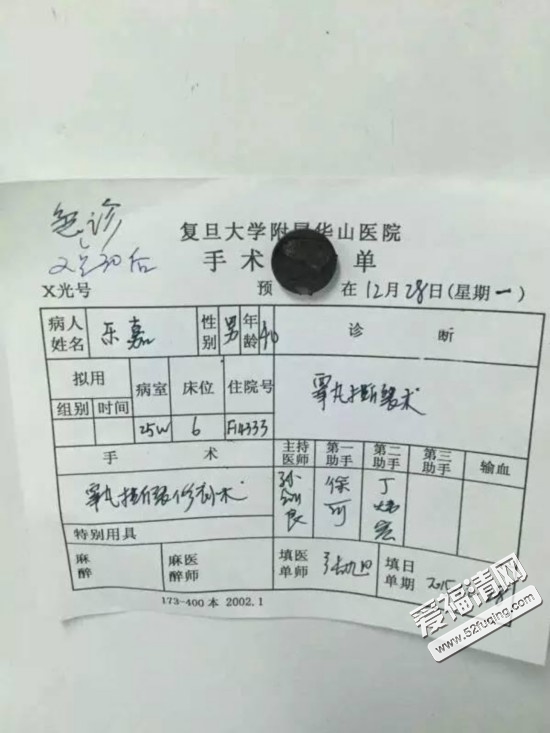 急诊
2点30后
复旦大学附属华山医院
手术 单
X光号 预 在12月28日(星期一)
病人姓名 乐嘉 性别 男 年龄 40 诊 断
拟用 病室 床位 住院号
组别 时间 25W 6 睾丸
手 术 主持医师 第一助手 第二助手 第三助手 输血
睾丸 术
孙 徐 丁
特别用具
麻醉 麻醉医师 填单医师 填单日期 2015
173-400 本 2002.1
爱福清网
www.52fuqing.com